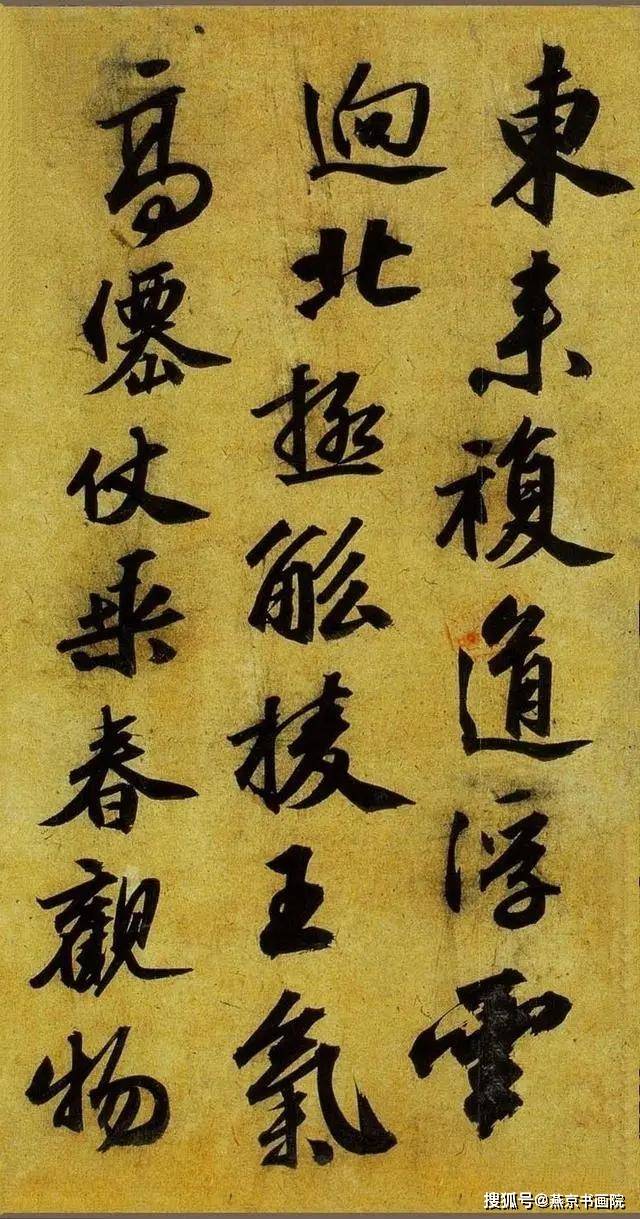 東来複道浮雲
逈北極觚棱王氣
高僊仗乘春觀物
搜狐号@燕京书画院